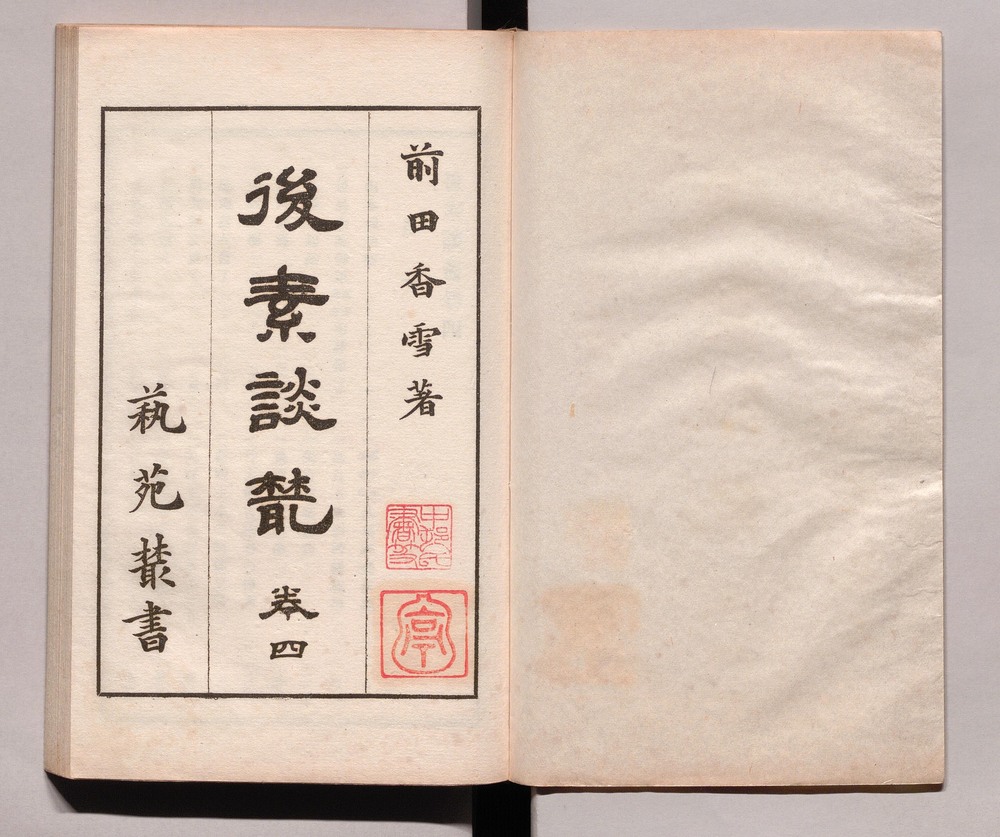 前田香雪著
後素談叢 卷四
蓺苑叢書
亭